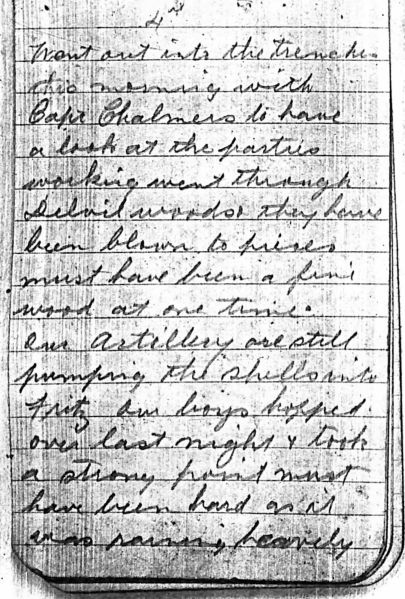 4th
Went out into the trenches
this morning with
Capt Chalmers to have
a look at the parties
working went through
Delvil woods they have
been blown to pieces
must have been a fine
wood at one time.
Our Artillery are still
pumping the shells into
Fritz Our boys hopped
over last night & took
a strong point must
have been hard as it
was raining heavely